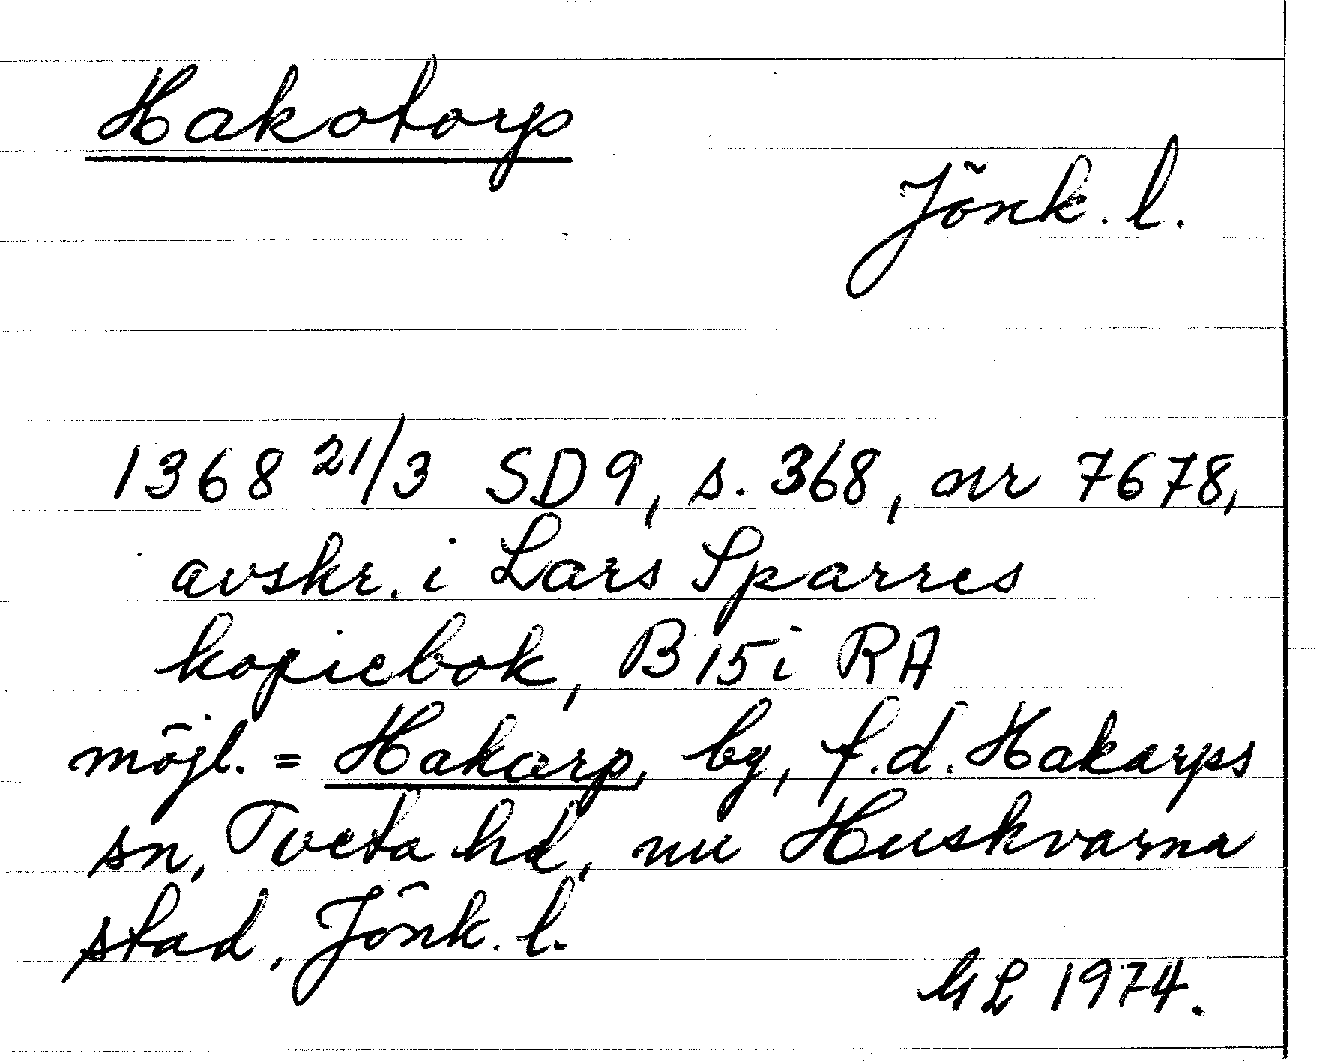 Hakotorp
Jönk. l.
1368 21/3 SD9, s. 368, nr 7678,
avskr. i Lars Sparres
kopiebok, B 15 i RA
möjl. = Hakarp, by, f.d. Hakarps
sn, Tveta hd, nu Huskvarna
stad, Jönk. l.
GL 1974.